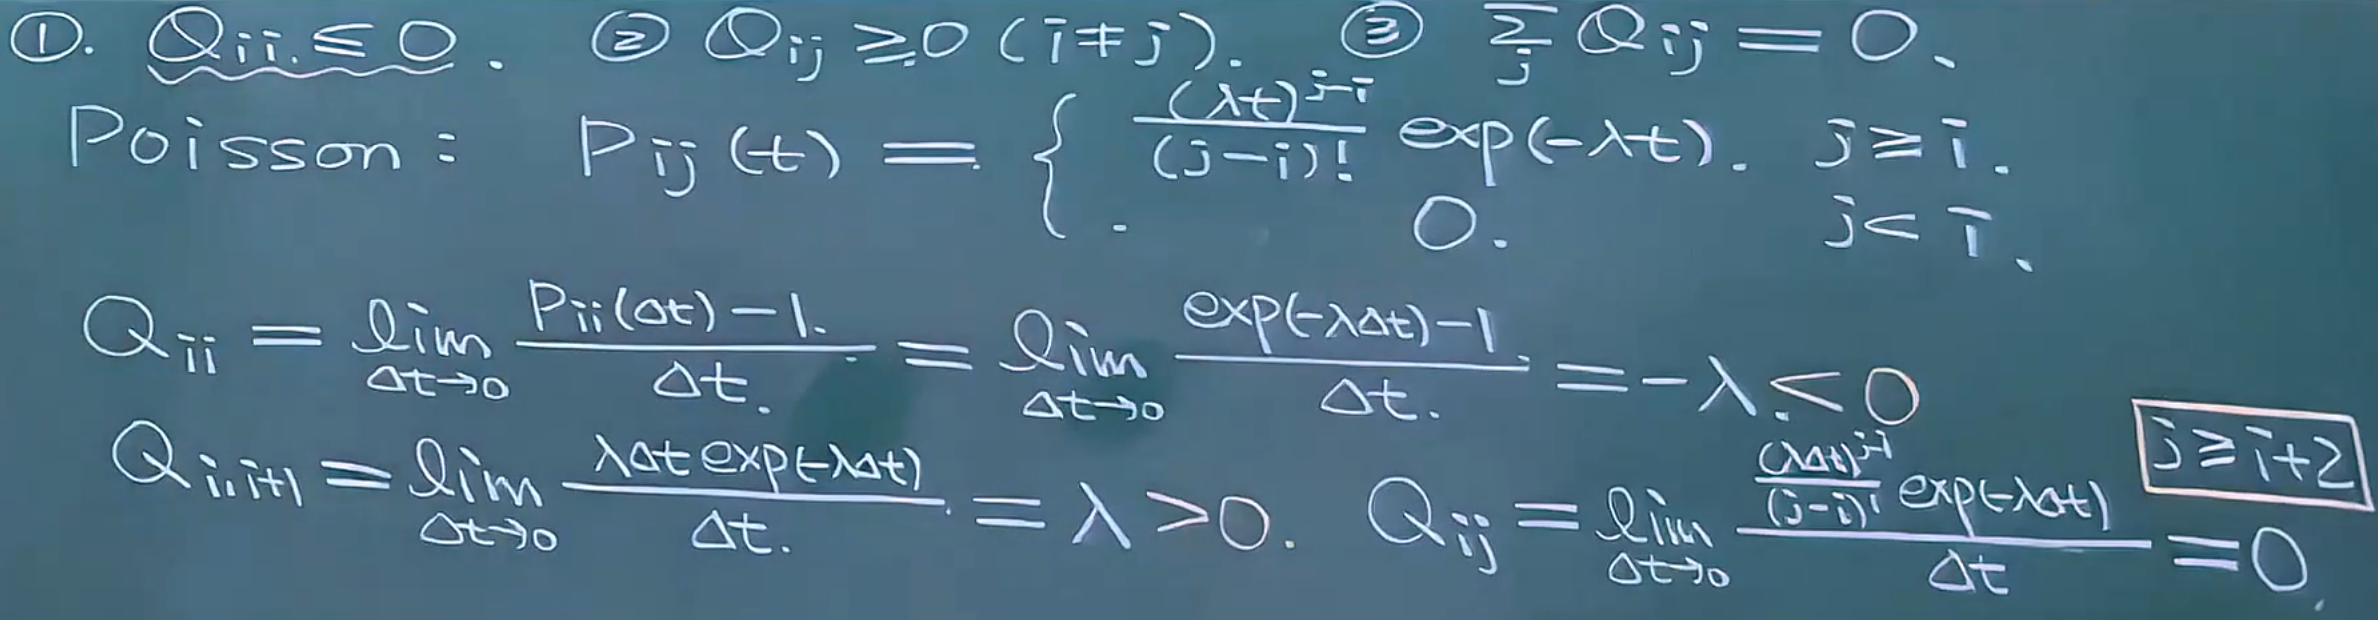 ①. Qii ≤ 0. ② Qij ≥ 0 (i≠j). ③ Σ_j Qij = 0.
Poisson: Pij(t) = { (λt)^{j-i} / (j-i)! exp(-λt). j ≥ i.
0. j < i.
Qii = lim_{Δt→0} (Pii(Δt) - 1) / Δt. = lim_{Δt→0} (exp(-λΔt) - 1) / Δt. = -λ < 0
Qi,i+1 = lim_{Δt→0} λΔt exp(-λΔt) / Δt. = λ > 0. Qij = lim_{Δt→0} ((λΔt)^{j-i} / (j-i)! exp(-λΔt)) / Δt = 0. j ≥ i+2